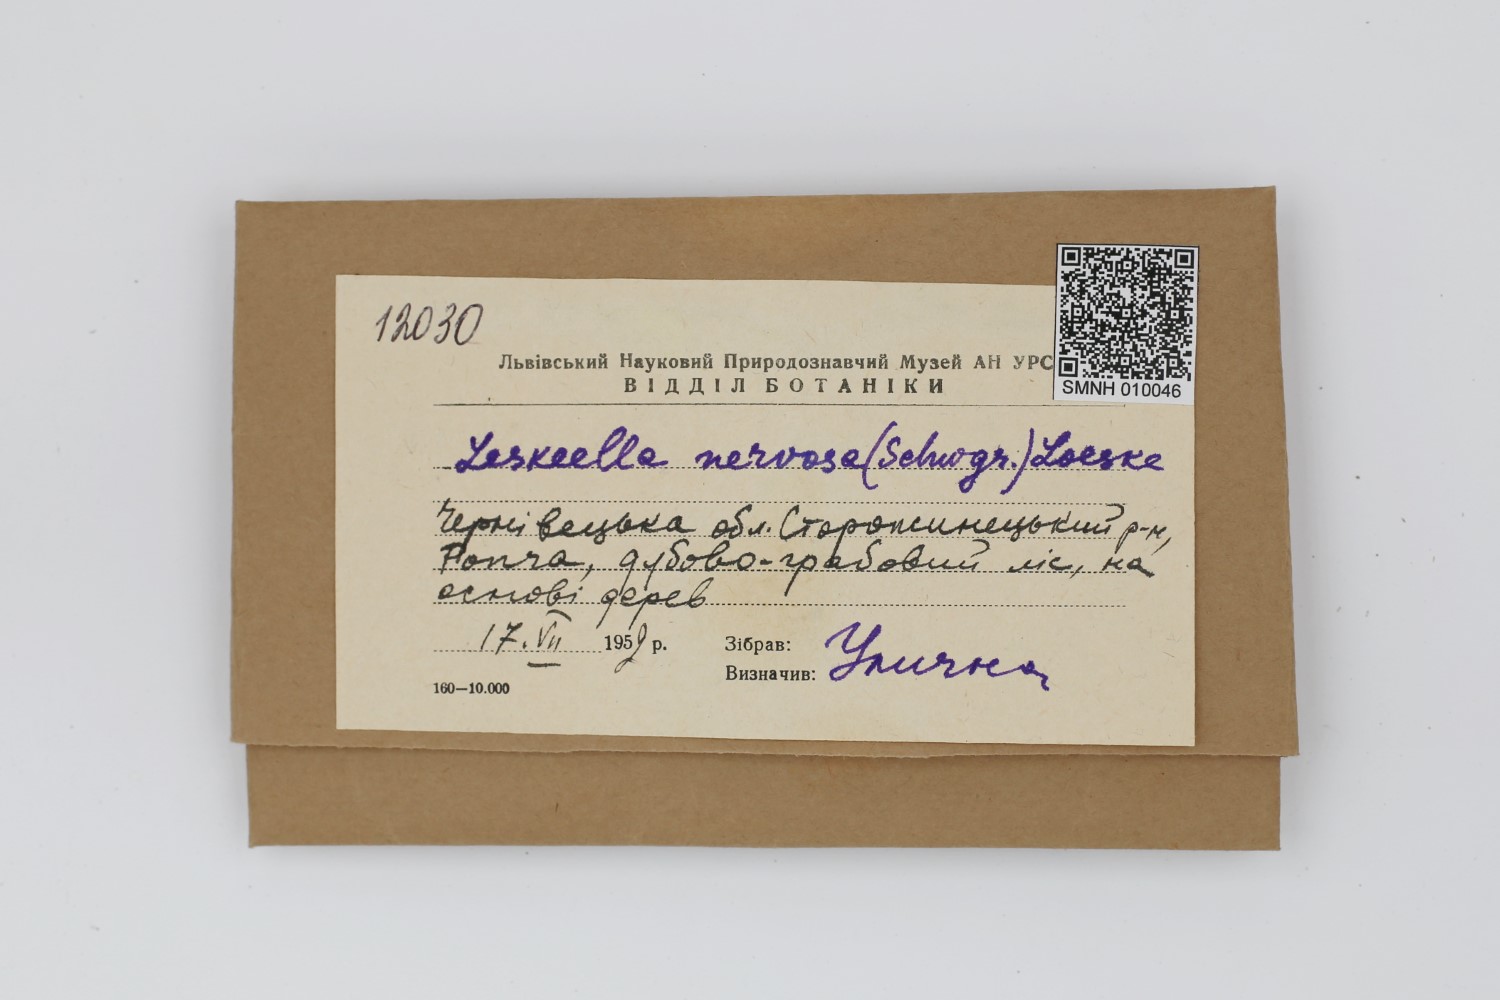 12030
Львівський Науковий Природознавчий Музей АН УРС
ВІДДІЛ БОТАНІКИ
SMNH 010046
Leskeella nervosa (Schwgr.) Loeske
Чернівецька обл. Сторожинецький р-н,
Ропча, дубово-грабовий ліс, на
основі дерев
17. VII 1959 р.
Зібрав: Улична
Визначив:
160—10.000